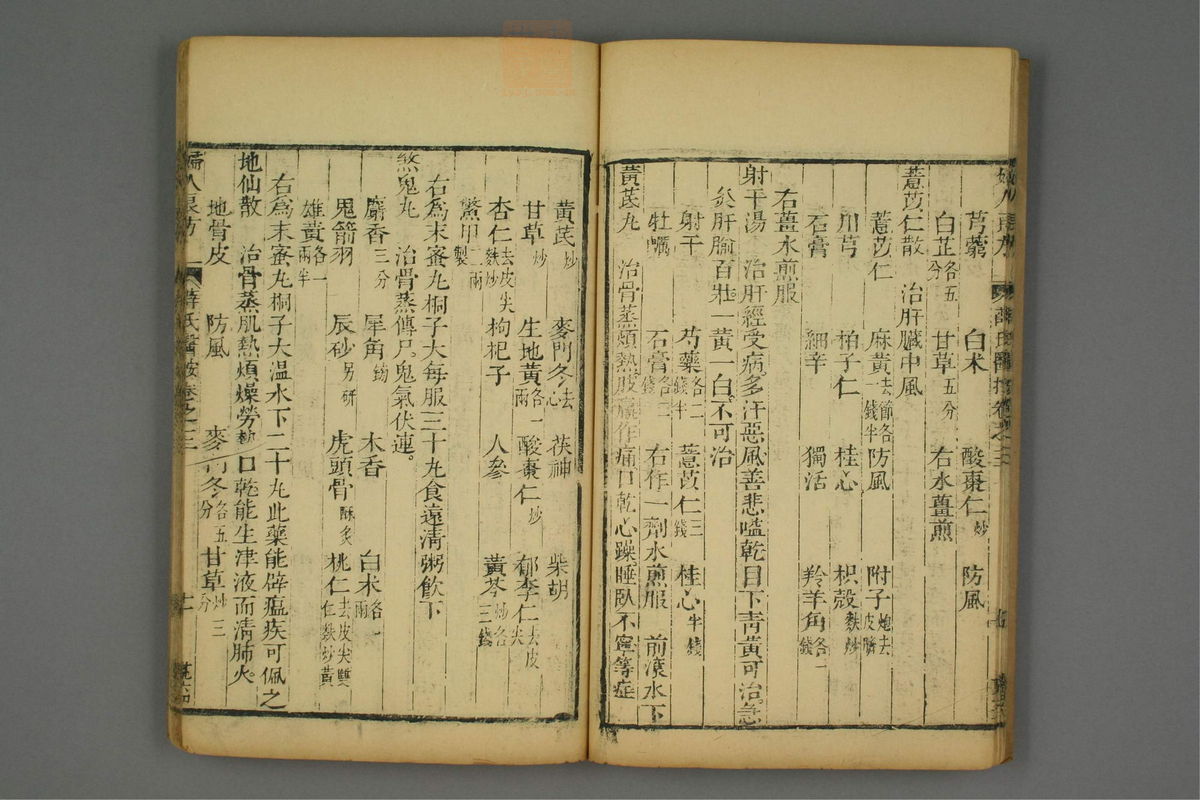 芎藭　白朮　酸棗仁炒　防風
白芷各五分　甘草五分　右水薑煎
薏苡仁散　治肝臟中風
薏苡仁　麻黃去節各一錢半　防風　附子炮去皮臍
川芎　柏子仁　桂心　枳殼麩炒
石膏　細辛　獨活　羚羊角各一錢
右薑水煎服
射干湯　治肝經受病多汗惡風善悲嗌乾目下青黃可治急
灸肝腧百壯一黃一白不可治
射干　芍藥各二錢半　薏苡仁三錢　桂心半錢
牡蠣　石膏各二錢　右作一劑水煎服
黃芪丸　治骨蒸煩熱肢痛作痛口乾心躁睡臥不寧等症　前滾水下
黃芪炒　麥門冬去心　茯神　柴胡
甘草炒　生地黃各一兩　酸棗仁炒　郁李仁去皮尖
杏仁去皮尖麩炒　枸杞子　人參　黃芩炒各三錢
鱉甲製兩
右為末蜜丸桐子大每服三十丸食遠清粥飲下
煞鬼丸　治骨蒸傳尸鬼氣伏連
麝香三分　犀角鎊　木香　白朮各一兩
鬼箭羽　辰砂另研　虎頭骨酥炙　桃仁去皮尖雙仁麩炒黃
雄黃各一兩半
右為末蜜丸桐子大溫水下二十丸此藥能辟瘟疾可佩之
地仙散　治骨蒸肌熱煩燥勞熱口乾能生津液而清肺火
地骨皮　防風　麥門冬各五分　甘草炒三分
婦人良方　薛氏醫按卷之三